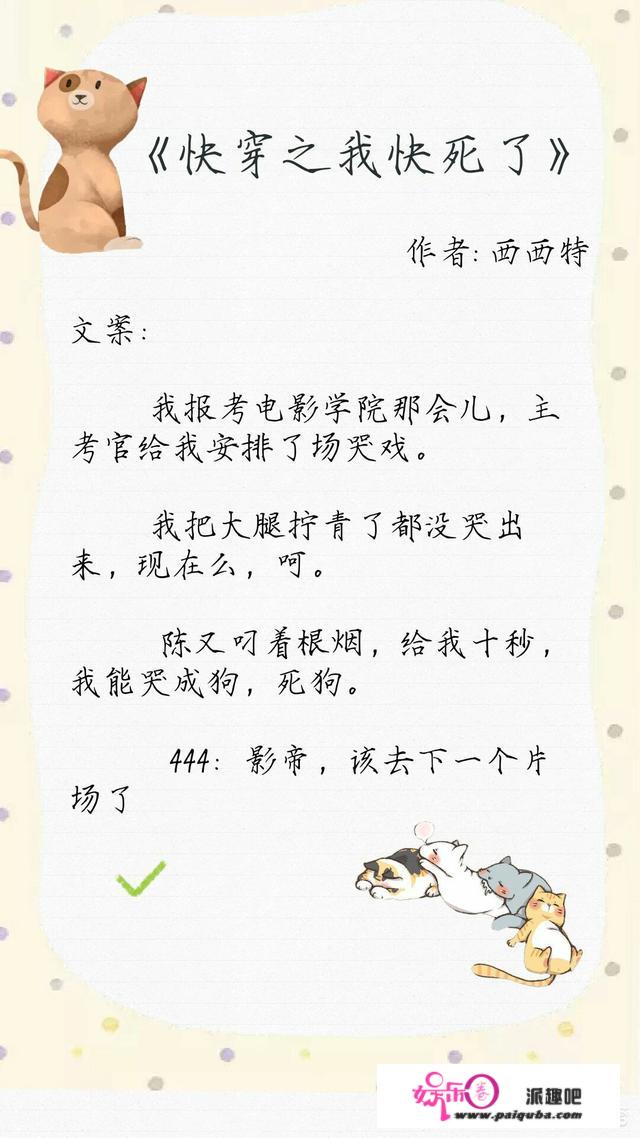 《快穿之我快死了》
作者:西西特
文案:
我报考电影学院那会儿，主
考官给我安排了场哭戏。
我把大腿拧青了都没哭出
来，现在么，呵。
陈又叼着根烟，给我十秒，
我能哭成狗，死狗。
444：影帝，该去下一个片
场了
娱乐圈 派趣吧
www.paiquba.com